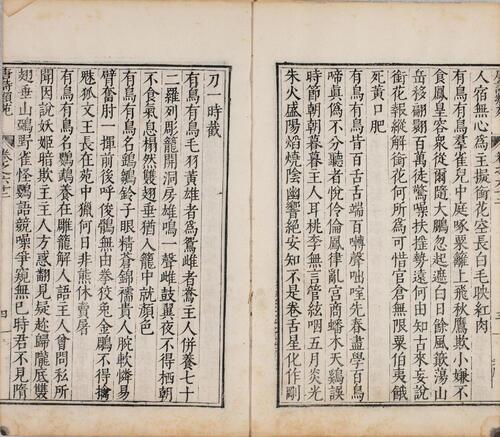 人宿無心爲主擬銜花空長白毛映紅肉
有鳥有鳥羣雀兒中庭啄粟籬上飛秋鷹欺小嫌不
食鳳皇容衆從爾隨大鵬忽起遮白日餘風簸蕩山
岳移翩翩百萬徒驚噪扶搖勢遠何由知古來妄說
銜花報縱解銜花何所爲可惜官倉無限粟伯夷餓
死黃口肥
有鳥有鳥皆百舌舌端百囀聲咄喧先春盡學百鳥
啼真僞不分聽者悅伶倫鳳律亂宮商蟠木天雞誤
時節朝朝暮暮主人耳桃李無言管絃咽五月炎光
朱火盛陽焰燒陰幽響絕安知不是卷舌星化作剛
刀一時截
有鳥有鳥毛羽黃雄者爲鴛雌者鴦主人併養七十
二羅列彫籠開洞房雄鳴一聲雌鼓翼夜不得栖朝
不食氣息榻然雙翅垂猶入籠中就顏色
有鳥有鳥名鷂雛鈴子眼精蒼錦襦貴人腕軟憐易
臂奮肘一揮前後呼俊鶻無由拳狡兔金鵰不得擒
魅狐文王長在苑中獵何日非熊休賣屠
有鳥有鳥名鸚鵡養在雕籠解人語主人曾問私所
聞因說妖姬暗欺主主人方惑翻見疑趁歸隴底雙
翅垂山鵶野雀怪鸚語競噪爭窺無已時君不見隋
唐詩類苑
四